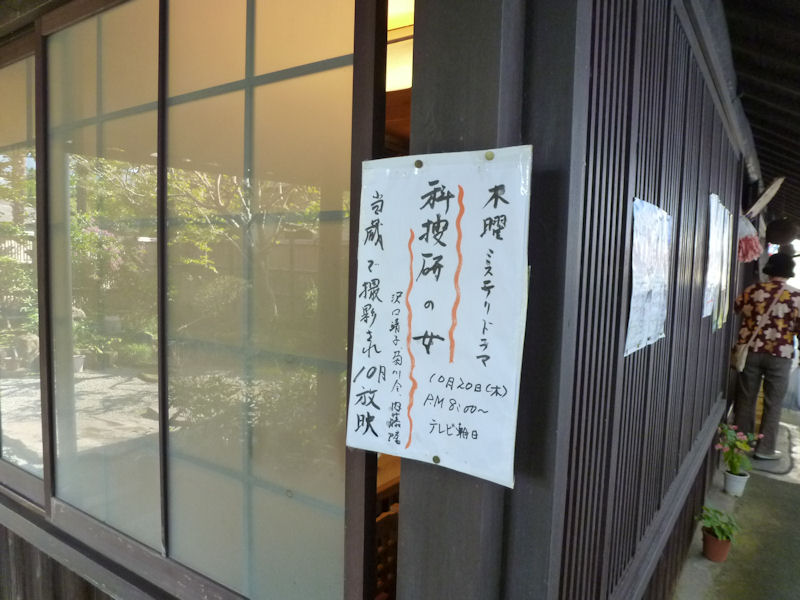 木曜ミステリドラマ
科捜研の女
10月20日(木)
PM8:00～
テレビ朝日
沢口靖子、菊川令、内藤隆
当蔵で撮影され10月放映